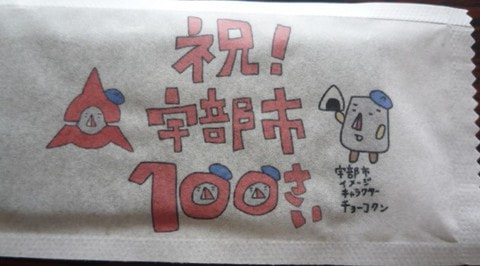 祝!
宇部市
100さい
宇部市
イメージ
キャラクター
チョーコクン